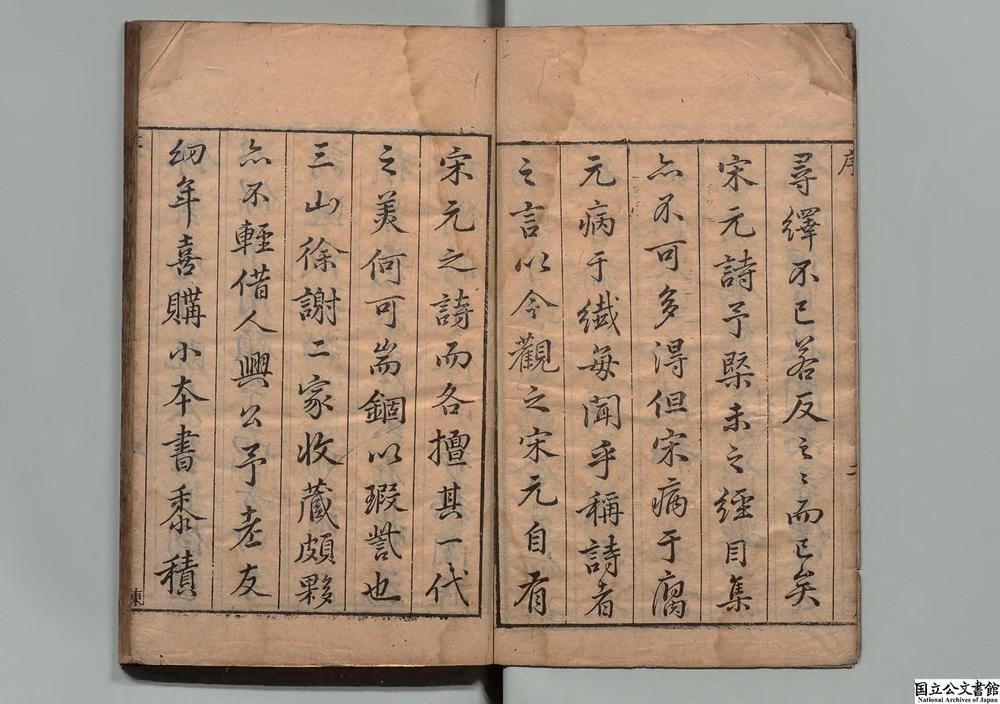 序
尋繹不已若反之之而已矣
宋元詩予槩未之經目集
亦不可多得但宋病于腐
元病于纖每聞乎稱詩者
之言以今觀之宋元自有
宋元之詩而各擅其一代
之美何可耑錮以瑕訾也
三山徐謝二家收藏頗夥
亦不輕借人興公予老友
幼年喜購小本書黍積
国立公文書館
National Archives of Japan